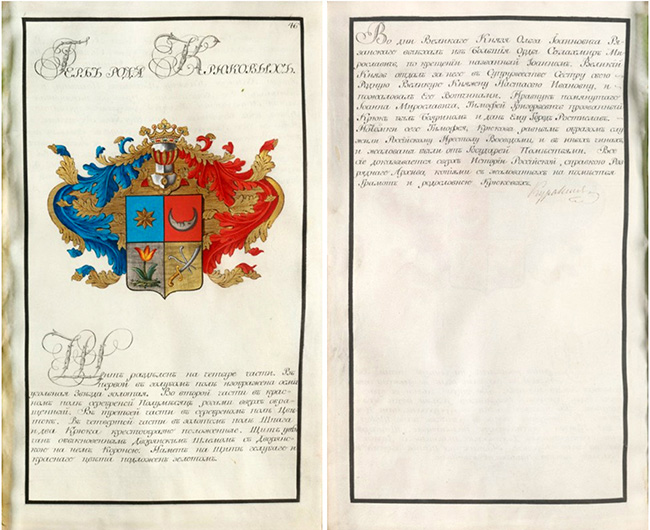 46
Гербъ рода Крюковыхъ.
Щитъ раздѣленъ на четыре части. Въ
первой въ голубомъ полѣ изображена осми
угольная Звѣзда золотая. Во второй части въ крас-
номъ полѣ серебреной Полумѣсяцъ рогами вверхъ обра-
щенной. Въ третьей части въ серебреномъ полѣ Цвѣ-
токъ. Въ четвертой части въ золотомъ полѣ Шпага
и два Крюка крестообразно положенные. Щитъ увѣн-
чанъ обыкновеннымъ Дворянскимъ Шлемомъ съ Дворян-
скою на немъ Короною. Наметъ на Щитѣ голубаго и
краснаго цвѣта подложенъ золотомъ.
Во дни Великаго Князя Олега Іоанновича Ря-
занскаго выѣхалъ изъ большія Орды Солахмиръ Ми-
рославичь, по крещеніи названный Іоанномъ. Великій
Князь отдалъ за него въ Супружество Сестру свою
родную Великую Княжну Настасью Ивановну, и
пожаловалъ Его Вотчинами. Правнукъ помянутаго
Іоанна Мирославича, Тимофей Григорьевичь прозваніемъ
Крюкъ былъ Бояриномъ и данъ Ему Городъ Ростиславль.
Потомки сего Тимофея, Крюковы, равнымъ образомъ слу-
жили Россійскому Престолу Воеводами, и въ иныхъ чинахъ,
и жалованы были отъ Государей Помѣстьями. Все
сіе доказывается сверхъ Исторіи Россійской, справкою Раз-
ряднаго Архива, копіями съ жалованныхъ на помѣстья
Грамотъ и родословною Крюковыхъ.